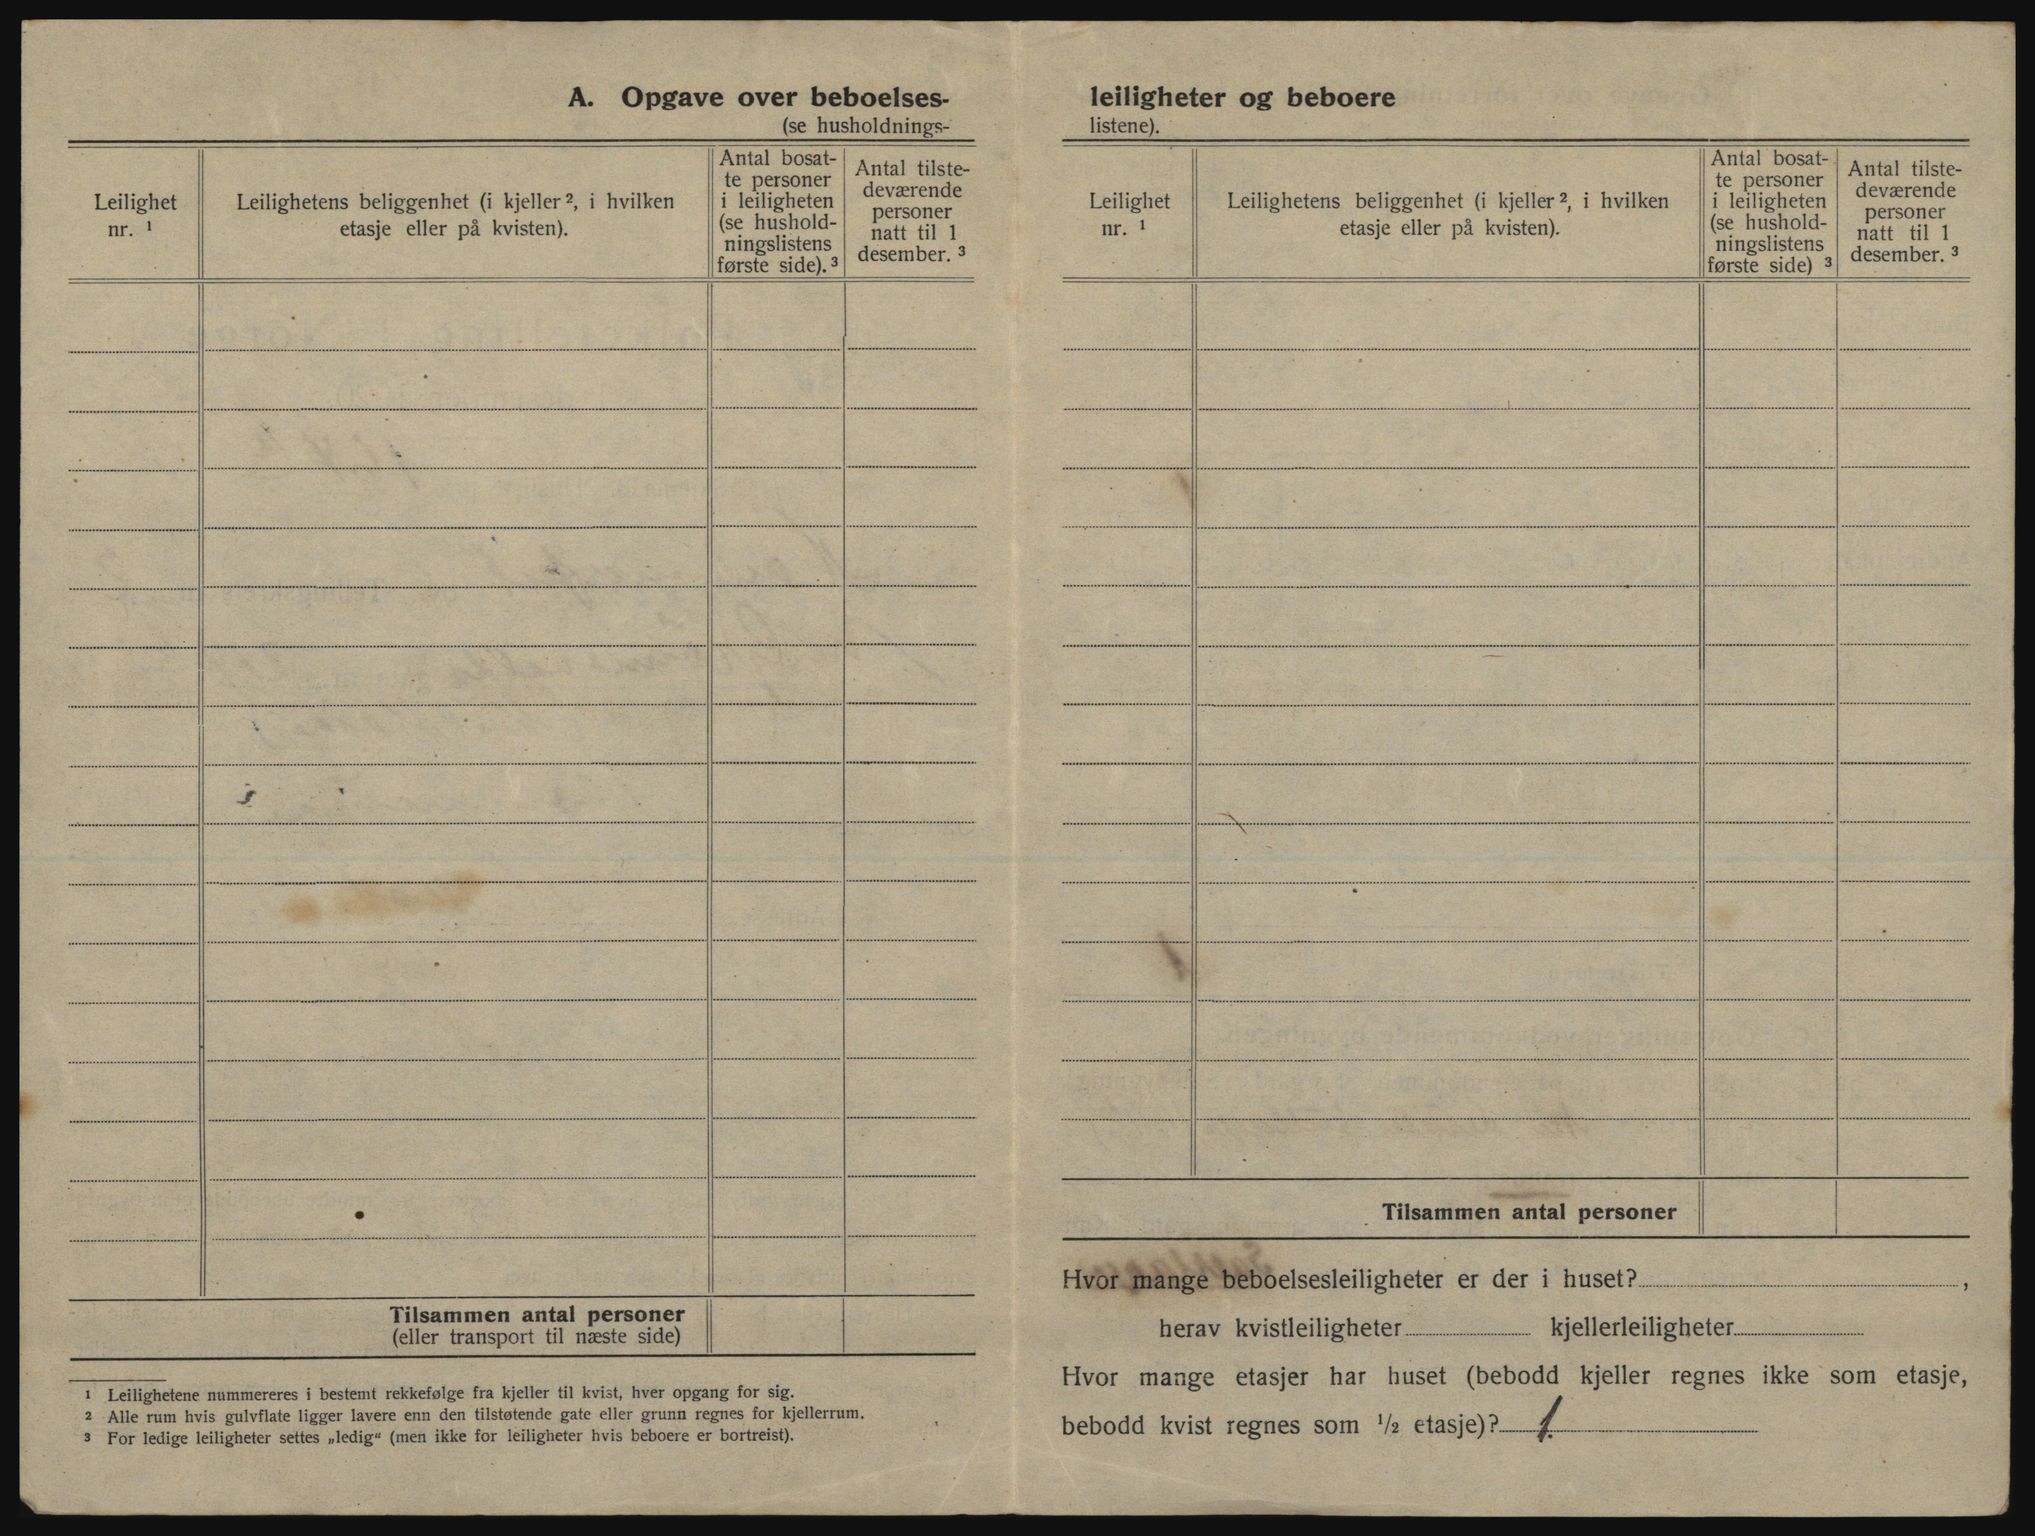 A. Opgave over beboelses-
(se husholdnings-
Leilighet
nr. ¹
Leilighetens beliggenhet (i kjeller ², i hvilken
etasje eller på kvisten).
Antal bosat-
te personer
i leiligheten
(se hushold-
ningslistens
første side). ³
Antal tilste-
deværende
personer
natt til 1
desember. ³
Tilsammen antal personer
(eller transport til næste side)
¹ Leilighetene nummereres i bestemt rekkefølge fra kjeller til kvist, hver opgang for sig.
² Alle rum hvis gulvflate ligger lavere enn den tilstøtende gate eller grunn regnes for kjellerrum.
³ For ledige leiligheter settes „ledig“ (men ikke for leiligheter hvis beboere er bortreist).
leiligheter og beboere
listene).
Leilighet
nr. ¹
Leilighetens beliggenhet (i kjeller ², i hvilken
etasje eller på kvisten).
Antal bosat-
te personer
i leiligheten
(se hushold-
ningslistens
første side) ³
Antal tilste-
deværende
personer
natt til 1
desember. ³
Tilsammen antal personer
Hvor mange beboelsesleiligheter er der i huset? ,
herav kvistleiligheter kjellerleiligheter
Hvor mange etasjer har huset (bebodd kjeller regnes ikke som etasje,
bebodd kvist regnes som ½ etasje)? 1.